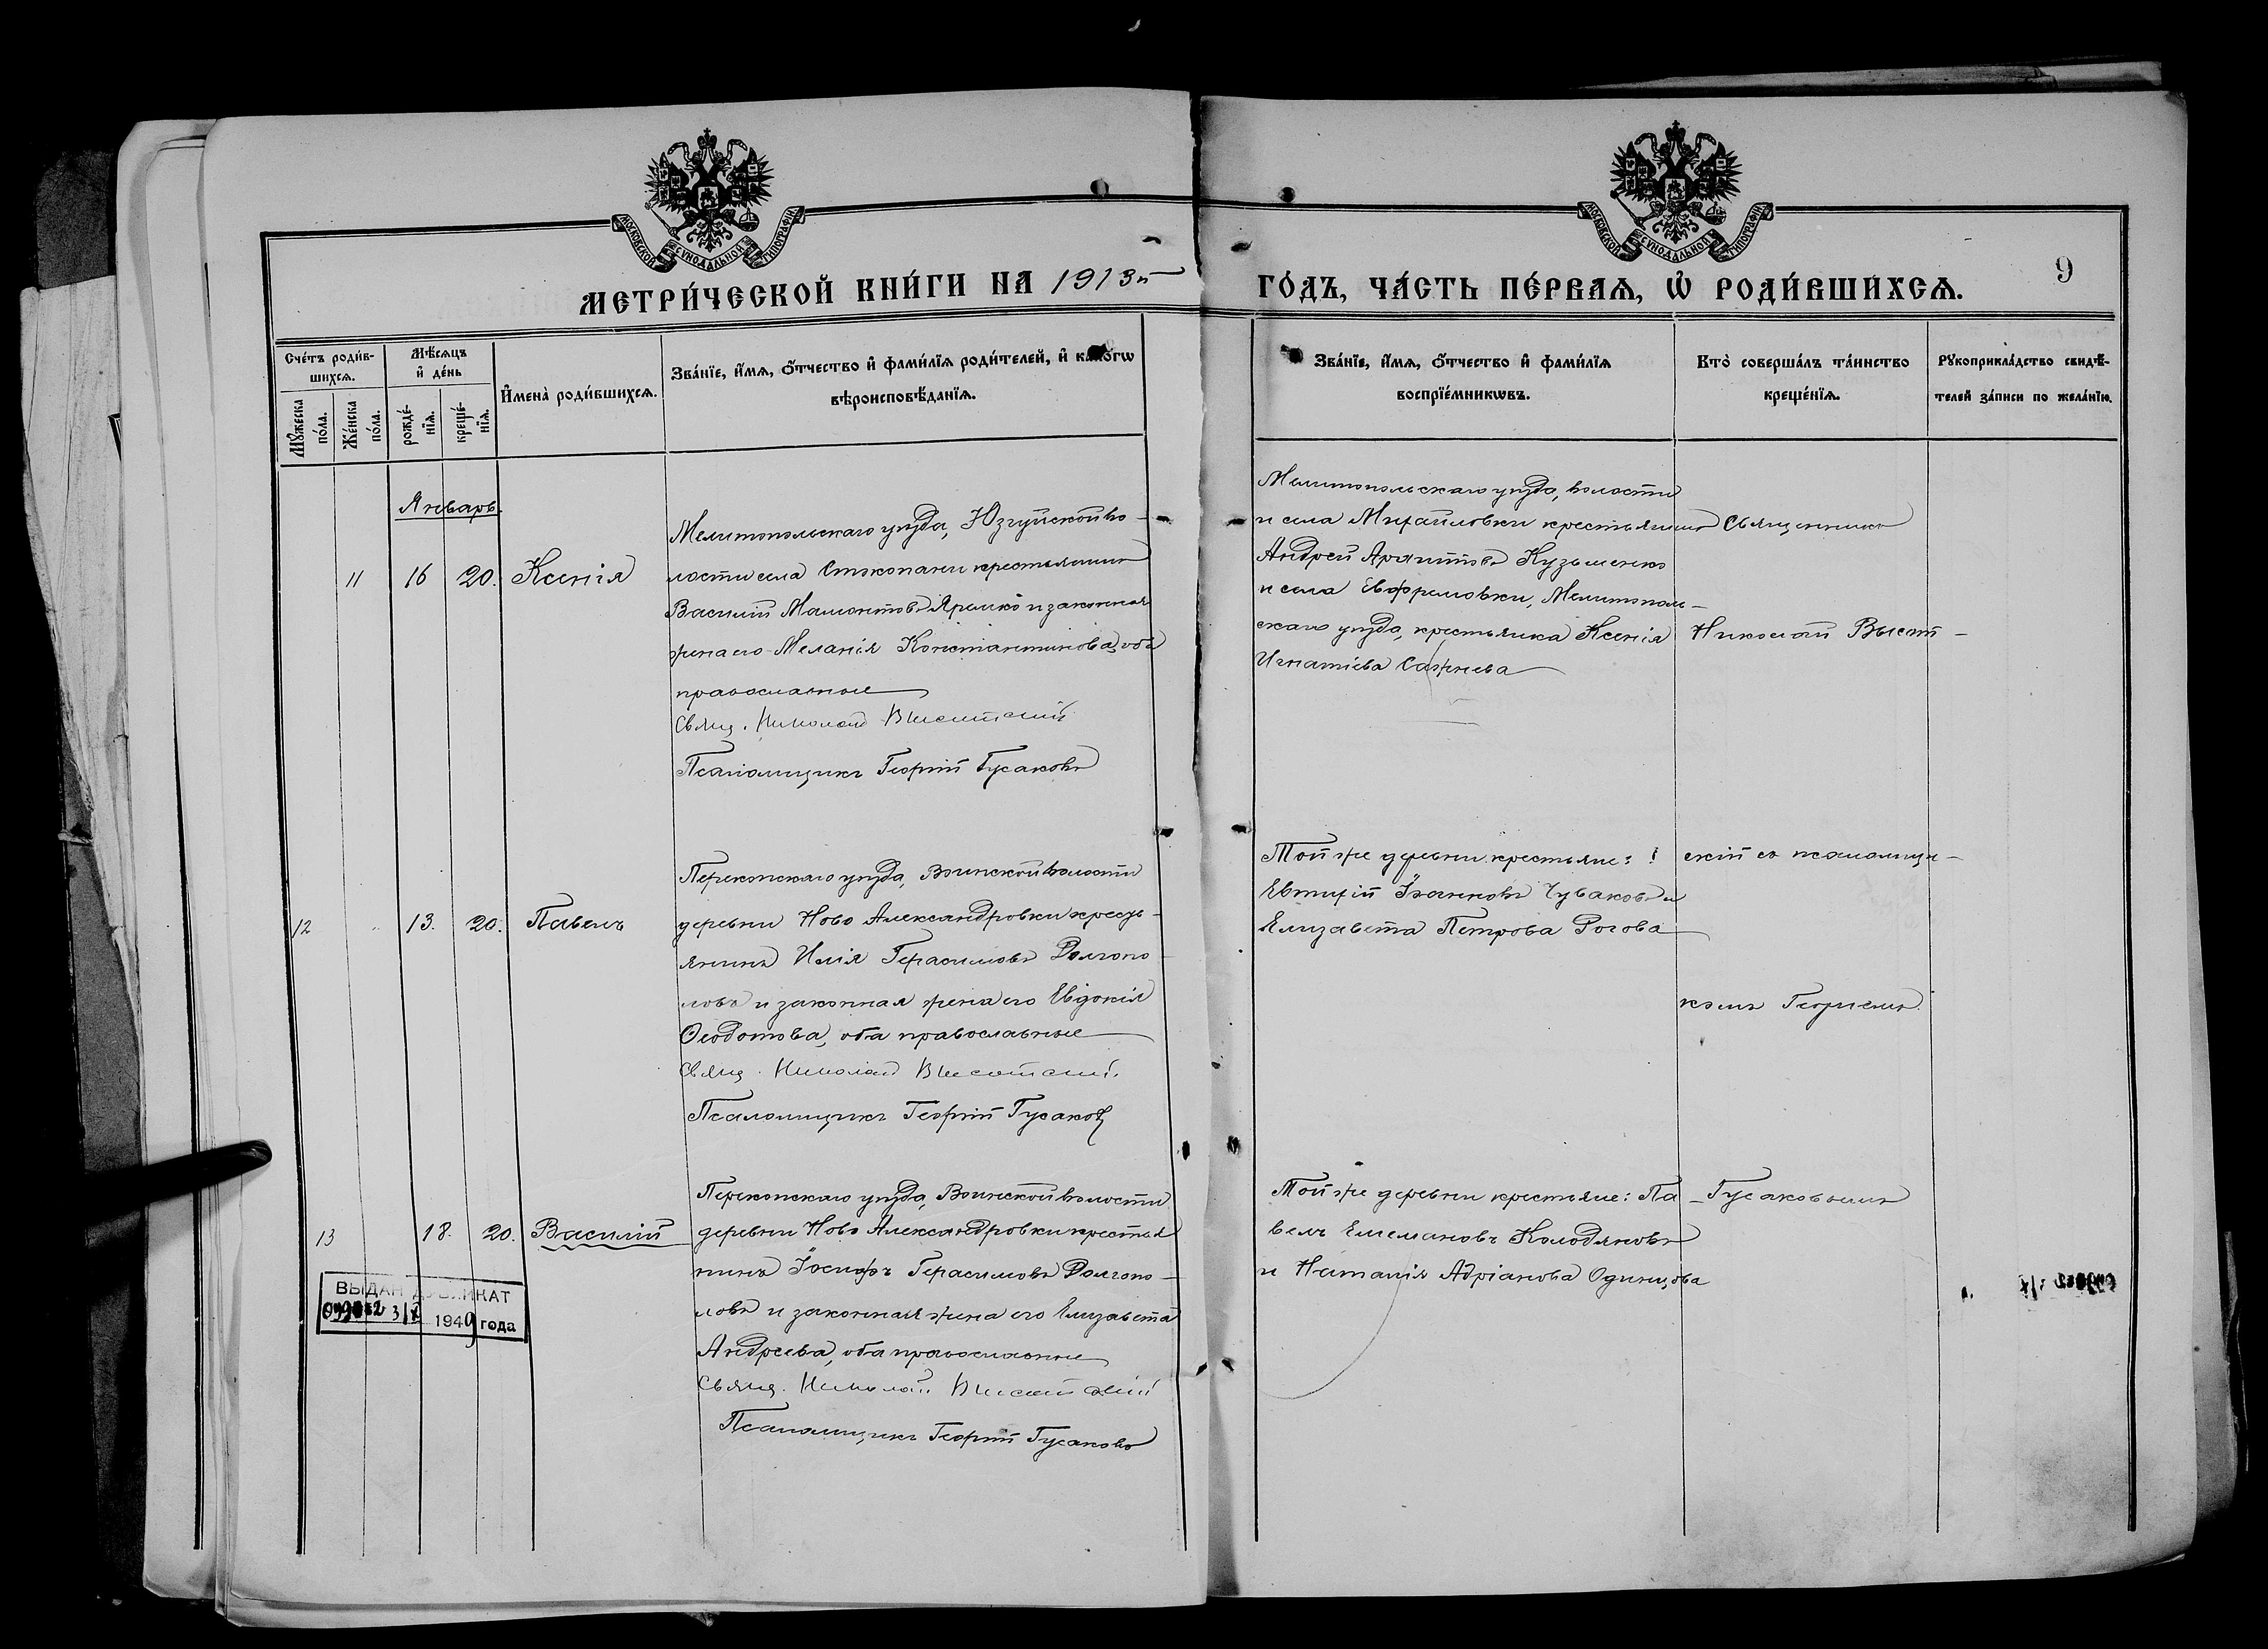 МОСКОВСКОЙ СѴНОДАЛЬНОЙ ТИПОГРАФІИ
МОСКОВСКОЙ СѴНОДАЛЬНОЙ ТИПОГРАФІИ
МЕТРИ́ЧЕСКОЙ КНИ́ГИ НА 1913й
ГО́ДЪ, ЧА́СТЬ ПЕ́РВАѦ, Ѡ҆ РОДИ́ВШИХСѦ.
9
Сче́тъ роди́в-
шихсѧ.
Мꙋ́жеска по́ла.
Же́нска по́ла.
Мѣ́сѧцъ
и҆ де́нь
рожде́-
нїѧ.
креще́-
нїѧ.
И҆мена̀ роди́вшихсѧ.
Зва́нїе, и҆́мѧ, ѻ҆́тчество и҆ фами́лїѧ роди́телей, и҆ како́гѡ
вѣроисповѣ́данїѧ.
Зва́нїе, и҆́мѧ, ѻ҆́тчество и҆ фами́лїѧ
воспрїе́мникѡвъ.
Кто̀ соверша́лъ та́инство
креще́нїѧ.
Рꙋкоприкла́дство свидѣ́-
телей за́писи по жела́нїю.
Январь.
11 16 20. Ксенія
Мелитопольскаго уѣзда, Юзгуйской во-
лости села Стокопани крестьянинъ
Василій Мамонтовъ Яремко и законная
жена его Меланія Константинова, оба
православные
Свящ. Николай Высотскій
Псаломщикъ Георгій Гусаковъ
Мелитопольскаго уѣзда, волости
и села Михайловки крестьянинъ
Андрей Кузьменко
и села Евфремовки, Мелитополь-
скаго уѣзда, крестьянка Ксенія
Игнатіева Сажнева
Священникъ
Николай Высот-
12 " 13. 20. Павелъ
Перекопскаго уѣзда, Воинской волости
деревни Ново Александровки кресть-
янинъ Илія Герасимовъ Долгопо-
ловъ и законная жена его Евдокія
Ѳеодотова, оба православные
Свящ. Николай Высотскій.
Псаломщикъ Георгій Гусаковъ
Той же деревни крестьяне:
Евтихій Іоанновъ Чуваковъ и
Елизавета Петрова Рогова
скій съ псаломщи-
комъ Георгіемъ
13 18. 20. Василій
Перекопскаго уѣзда, Воинской волости
деревни Ново Александровки крестья
нинъ Іосифъ Герасимовъ Долгопо-
ловъ и законная жена его Елизавета
Андреева, оба православные
Свящ. Николай Высотскій
Псаломщикъ Георгій Гусаковъ
Той же деревни крестьяне: Па-
велъ Емельяновъ Колодяковъ
и Наталія Адріанова Одинцова
Гусаковымъ
ВЫДАН ДУБЛИКАТ
1949 года